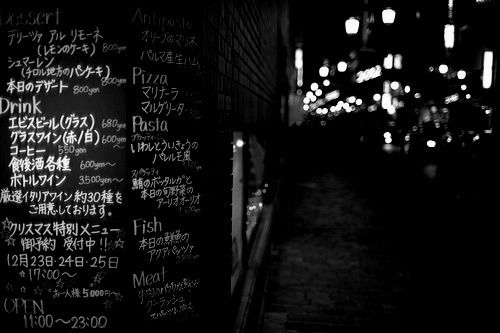 Dessert
デリーツィア アル リモーネ
(レモンのケーキ) 800yen
シュマーレン
(チロル地方のパンケーキ)
800yen
本日のデザート 800yen
Drink
エビスビール(グラス) 680yen
グラスワイン(赤/白) 600yen
コーヒー 550yen
食後酒各種 600yen〜
ボトルワイン 3,500yen〜
厳選イタリアワイン 約30種を
ご用意しております。
クリスマス特別メニュー
御予約 受付中!!
12月23日・24日・25日
17:00〜
お一人様 5,000yen〜
OPEN
11:00〜23:00
Antipasto
オリーブのマリネ
パルマ産生ハム
Pizza
マリナーラ
マルゲリータ
Pasta
いわしとういきょうの
パレルモ風
鮪のボッタルガと
本日の旬野菜の
アーリオオーリオ
Fish
本日の鮮魚の
アクアパッツァ
Meat
グーラッシュ